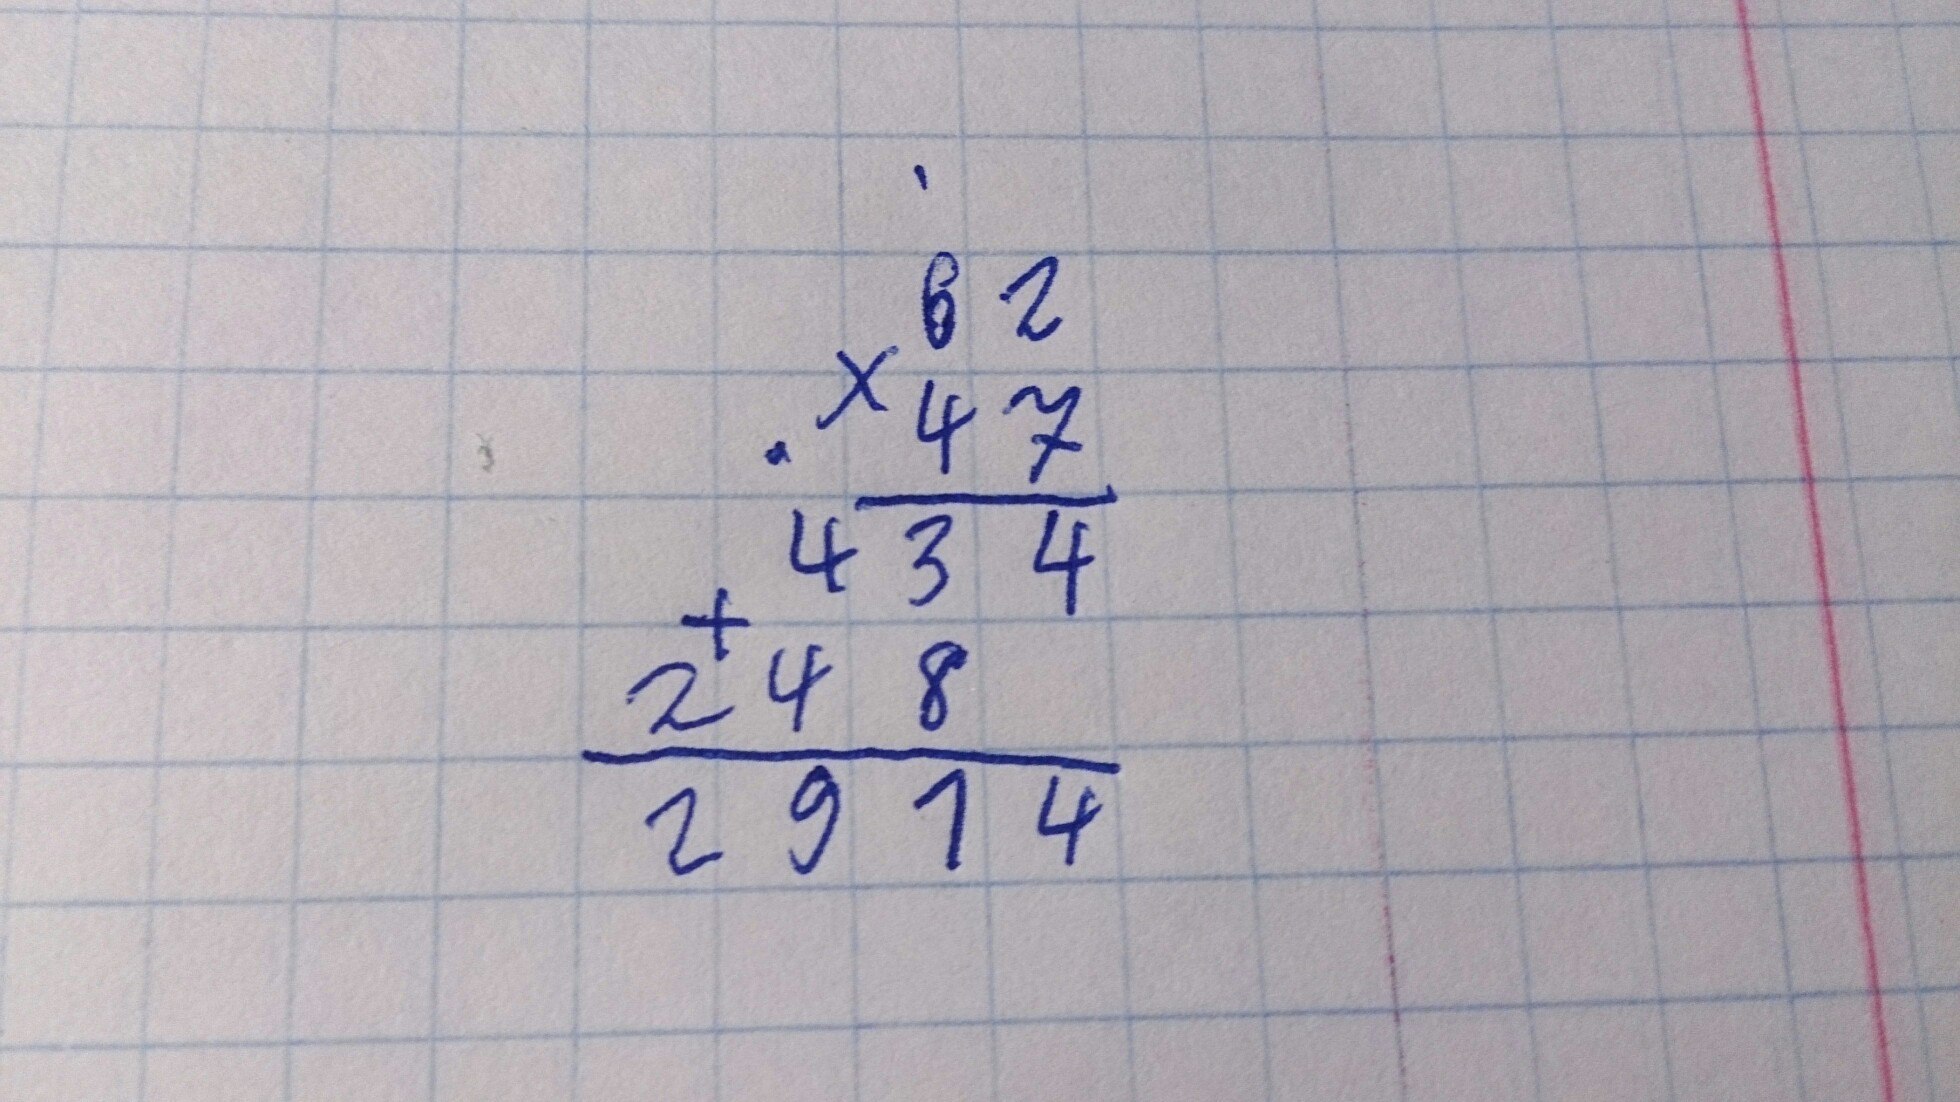 62
× 47
434
+
248
2914